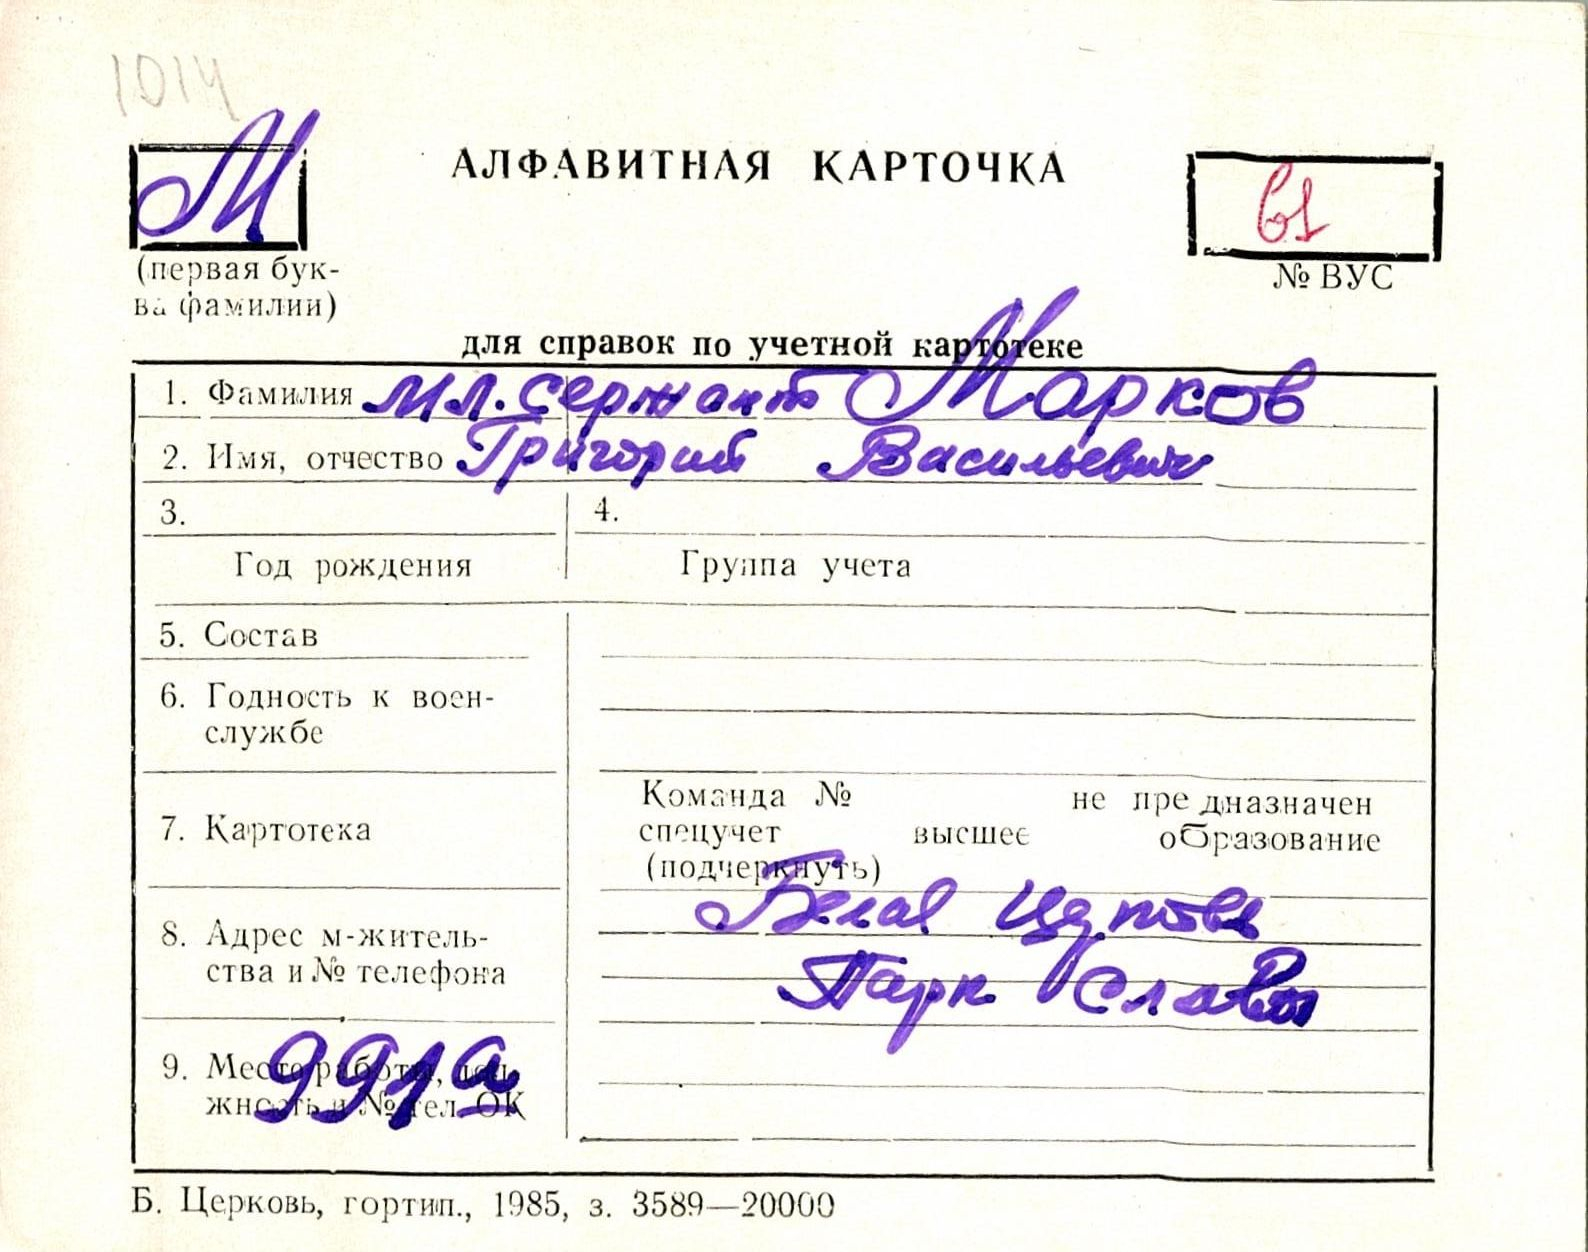 1014
М
АЛФАВИТНАЯ КАРТОЧКА
61
(первая бук-
ва фамилии)
№ ВУС
для справок по учетной картотеке
1. Фамилия мл. сержант Марков
2. Имя, отчество Григорий Васильевич
3. 4.
Год рождения Группа учета
5. Состав
6. Годность к воен-
службе
Команда № не предназначен
7. Картотека спецучет высшее образование
(подчеркнуть)
Белая Церковь
8. Адрес м-житель-
ства и № телефона Парк Славы
991а
9. Место работы, дол-
жность и № тел. ОК
Б. Церковь, гортип., 1985, з. 3589—20000